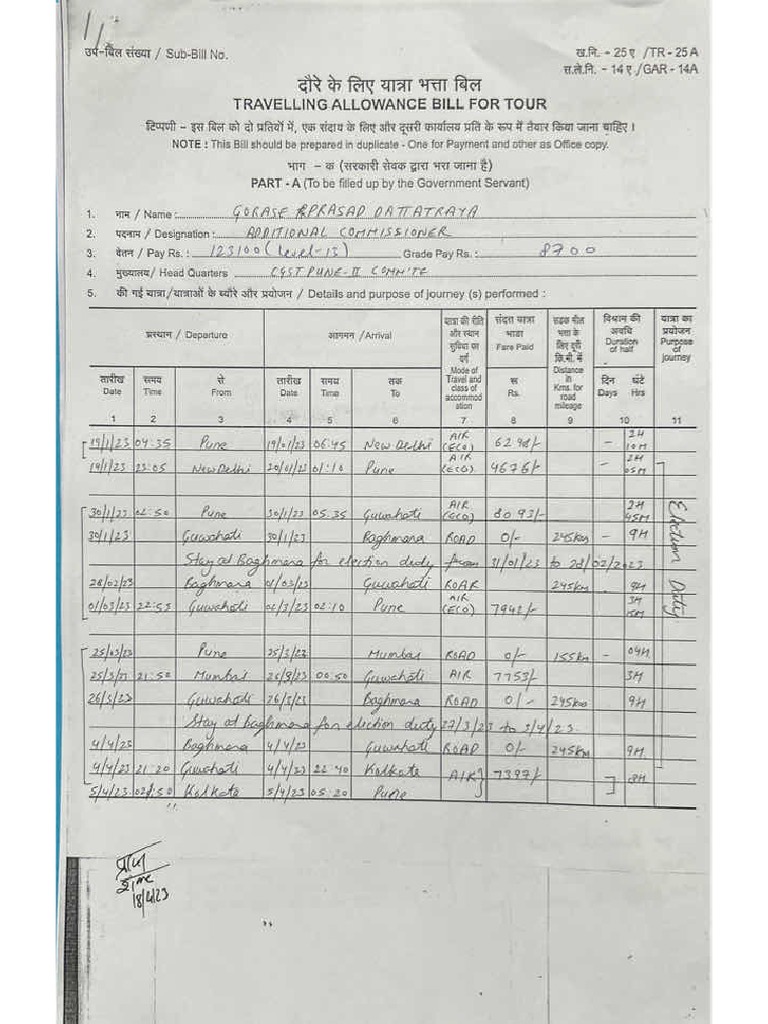 उप-बिल संख्या / Sub-Bill No.
ख.नि. - 25 ए /TR - 25 A
स.ले.नि. - 14 ए /GAR - 14A
दौरे के लिए यात्रा भत्ता बिल
TRAVELLING ALLOWANCE BILL FOR TOUR
टिप्पणी – इस बिल को दो प्रतियों में, एक संदाय के लिए और दूसरी कार्यालय प्रति के रूप में तैयार किया जाना चाहिए ।
NOTE : This Bill should be prepared in duplicate - One for Payment and other as Office copy.
भाग – क (सरकारी सेवक द्वारा भरा जाना है)
PART - A (To be filled up by the Government Servant)
1. नाम / Name : GORASE PRASAD DATTATRAYA
2. पदनाम / Designation : ADDITIONAL COMMISSIONER
3. वेतन / Pay Rs. : 123100 (Level-13) Grade Pay Rs. : 8700
4. मुख्यालय / Head Quarters CGST PUNE-II COMM'TE
5. की गई यात्रा/यात्राओं के ब्यौरे और प्रयोजन / Details and purpose of journey (s) performed :
प्रस्थान / Departure आगमन /Arrival यात्रा की रीति और स्थान सुविधा का वर्ग Mode of Travel and class of accommodation संदत्त यात्रा भाडा Fare Paid सड़क मील भत्ते के लिए दूरी कि.मी. में Distance in Kms. for road mileage विश्राम की अवधि Duration of half यात्रा का प्रयोजन Purpose of journey
तारीख Date समय Time से From तारीख Date समय Time तक To रू Rs. दिन Days घंटे Hrs
1 2 3 4 5 6 7 8 9 10 11
19/1/23 04:35 Pune 19/01/23 06:45 New Delhi AIR (ECO) 6298/- – 2H 10M
19/1/23 23:05 New Delhi 20/01/23 01:10 Pune AIR (ECO) 4676/- – 2H 05M
30/1/23 02:50 Pune 30/1/23 05.35 Guwahati AIR (ECO) 8093/- 2H 45M
30/1/23 Guwahati 30/1/23 Baghmara ROAD 0/- 245km – 9H
Stay at Baghmara for election duty from 31/01/23 to 28/02/2023
28/02/23 Baghmara 01/03/23 Guwahati ROAD 245km 9H
01/03/23 22:55 Guwahati 02/3/23 02:10 Pune AIR (ECO) 7942/- 3H 15M
25/03/23 Pune 25/3/23 Mumbai ROAD 0/- 155km – 04H
25/3/23 21:50 Mumbai 26/3/23 00:50 Guwahati AIR 7753/- 3H
26/3/23 Guwahati 26/3/23 Baghmara ROAD 0/- 245km 9H
Stay at Baghmara for election duty 27/3/23 to 3/4/23
4/4/23 Baghmara 4/4/23 Guwahati ROAD 0/- 245km 9H
4/4/23 21:20 Guwahati 4/4/23 22:40 Kolkata AIR 7397/- 8H
5/4/23 Kolkata 5/4/23 05:20 Pune
Election Duty
18/4/23